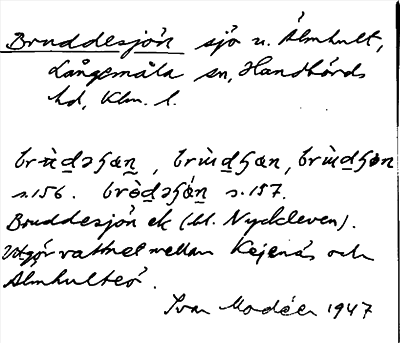 Bruddesjön sjö n. Älmhult,
Långemåla sn, Handbörds
hd, Klm. l.
brὺd̲əʃæn̲, brὺd̲ʃæn, brὺd̲ʃøn
s.156. brὸd̲əʃǿn̲ s.157.
Bruddesjön ek (bl. Nyckleven).
Utgör vattnet mellan Kejenäs och
Älmhulteö.
Ivar Modéer 1947